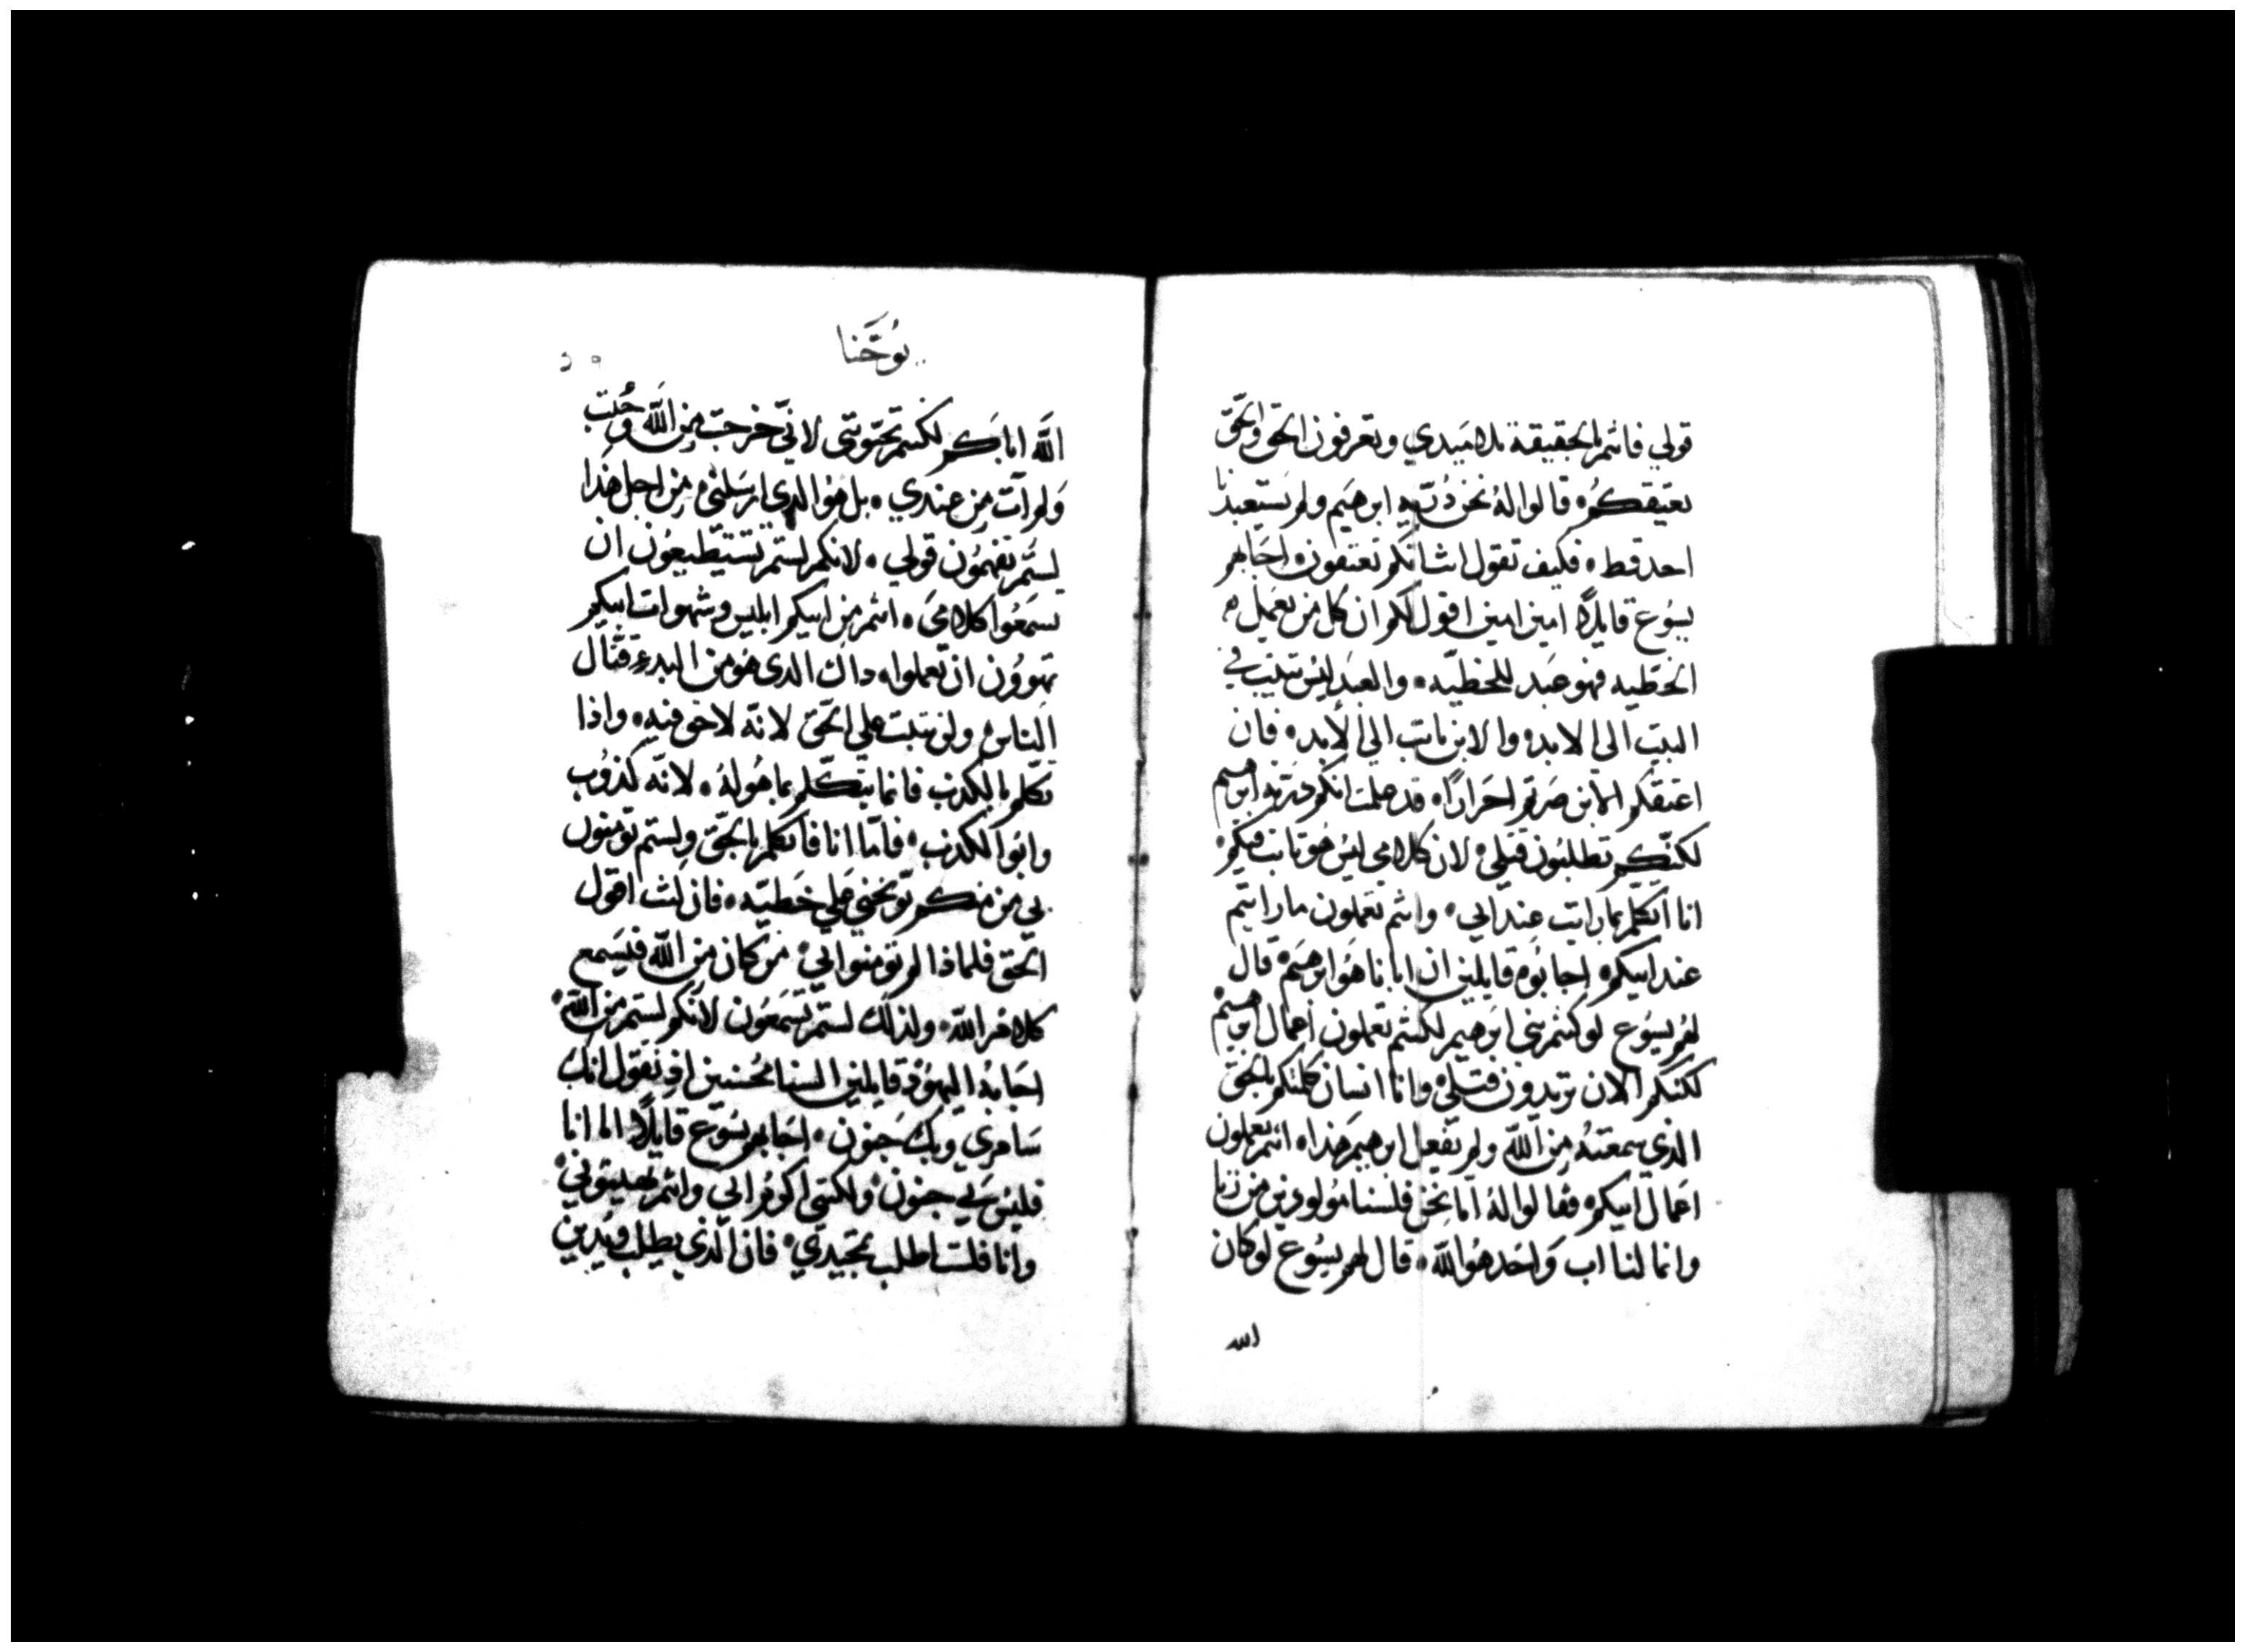 قولي فانتم بالحقيقة تلاميدي وتعرفون الحق والحق
يعتيقكم ۰ قالوا له نحن درية ابرهيم ولم يستعبدنا
احد قط ۰ فكيف تقول انت انكم تعتقون ۰ اجابهم
يسوع قايلا امين امين اقول لكم ان كل من يعمل
الخطيه فهو عبد للخطيه ۰ والعبد ليس يثبت في
البيت الى الابد ۰ والابن ثابت الي الابد ۰ فان
اعتقكم الابن صرتم احرارا ۰ قد علمت انكم درية ابرهيم
لكنكم تطلبون قتلي ۰ لان كلامي ليس هو ثابت فيكم ۰
انا اتكلم بما رايت عند ابي ۰ وانتم تعملون ما رايتم
عند ابيكم ۰ اجابوه قايلين ان ابانا هو ابرهيم ۰ قال
لهم يسوع لو كنتم بني ابرهيم لكنتم تعملون اعمال ابرهيم
لكنكم الان تريدون قتلي ۰ وانا انسان كلمتكم بالحق
الذي سمعته من الله ولم يفعل ابرهيم هذا ۰ انتم تعملون
اعمال ابيكم ۰ فقالوا له اما نحن فلسنا مولودين من زنا
وانما لنا اب واحد هو الله ۰ قال لهم يسوع لو كان
الله
يوحنا
الله اباكم لكنتم تحبوني لاني خرجت من الله وجيت
ولم آت من عندي ۰ بل هو الدي ارسلني ۰ من اجل هذا
لستم تفهمون قولي ۰ لانكم لستم تستطيعون ان
تسمعوا كلامي ۰ انتم من ابيكم ابليس وشهوات ابيكم
تهوون ان تعملوا ۰ داك الدي هو من البدء قتال
الناس ۰ ولن يثبت علي الحق لانه لا حق فيه ۰ واذا
تكلم بالكذب فانما يتكلم بما هو له ۰ لانه كذوب
وابو الكذب ۰ فاما انا فاتكلم بالحق ولستم تومنون
بي من منكم يوبخني علي خطيه ۰ فان كنت اقول
الحق فلماذا لم تومنوا بي ۰ من كان من الله فيسمع
كلام الله ۰ ولذلك لستم تسمعون لانكم لستم من الله ۰
اجابه اليهود قايلين السنا محسنين اذ نقول انك
سامري وبك جنون ۰ اجابهم يسوع قايلا اما انا
فليس بي جنون ۰ ولكني اكرم ابي وانتم تهينوني ۰
وانا فلست اطلب تمجيدي ۰ فان الذي يطلب ويدين